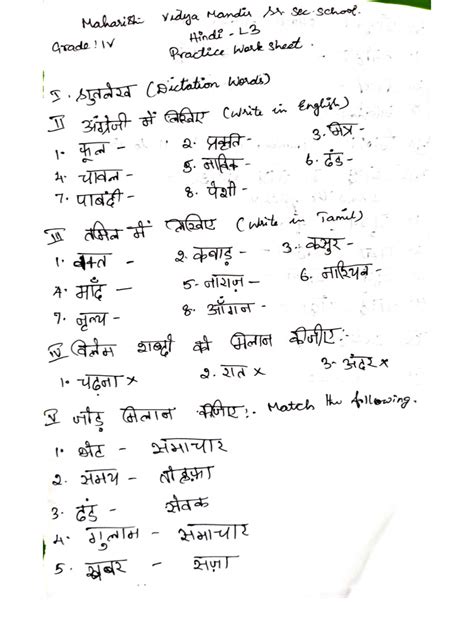 Maharishi Vidya Mandir Sr Sec. School.
Hindi - L3
Grade: IV
Practice Work sheet.
I. श्रुतलेख (Dictation Words)
II अंग्रेजी में लिखिए (Write in English)
1. फूल - 2. प्रकृति - 3. मित्र -
4. चावल - 5. नाविक - 6. दंड -
7. पाबंदी - 8. पेशी -
III तमिल में लिखिए (Write in Tamil)
1. वक्त - 2. कबाड़ - 3. कसुर -
4. माँद - 5. नाराज़ - 6. नारियल -
7. नृत्य - 8. आँगन -
IV विलोम शब्दों को मिलान कीजिए:-
1. चढ़ना × 2. रात × 3. अंदर ×
V जोड़ मिलान कीजिए:- Match the following.
1. भेंट - समाचार
2. समय - तोहफ़ा
3. दंड - सेवक
4. गुलाम - समाचार
5. खबर - सज़ा